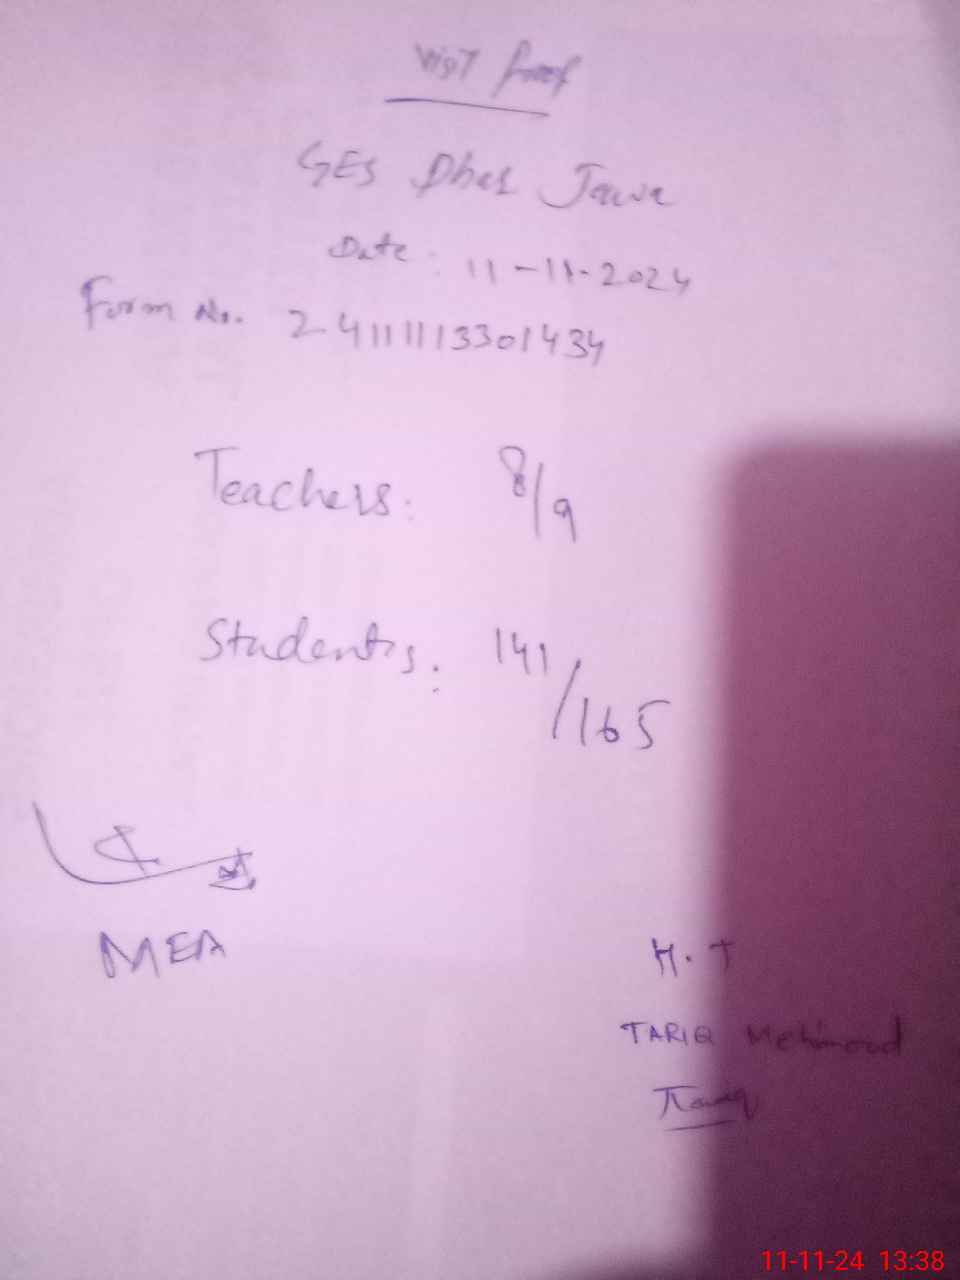 Visit Proof
GES Dhes Jawa
Date: 11-11-2024
Form No. 24111113301434
Teachers: 8/9
Students: 141/165
MEA
H.T
TARIQ Mehmood
Tariq
11-11-24 13:38